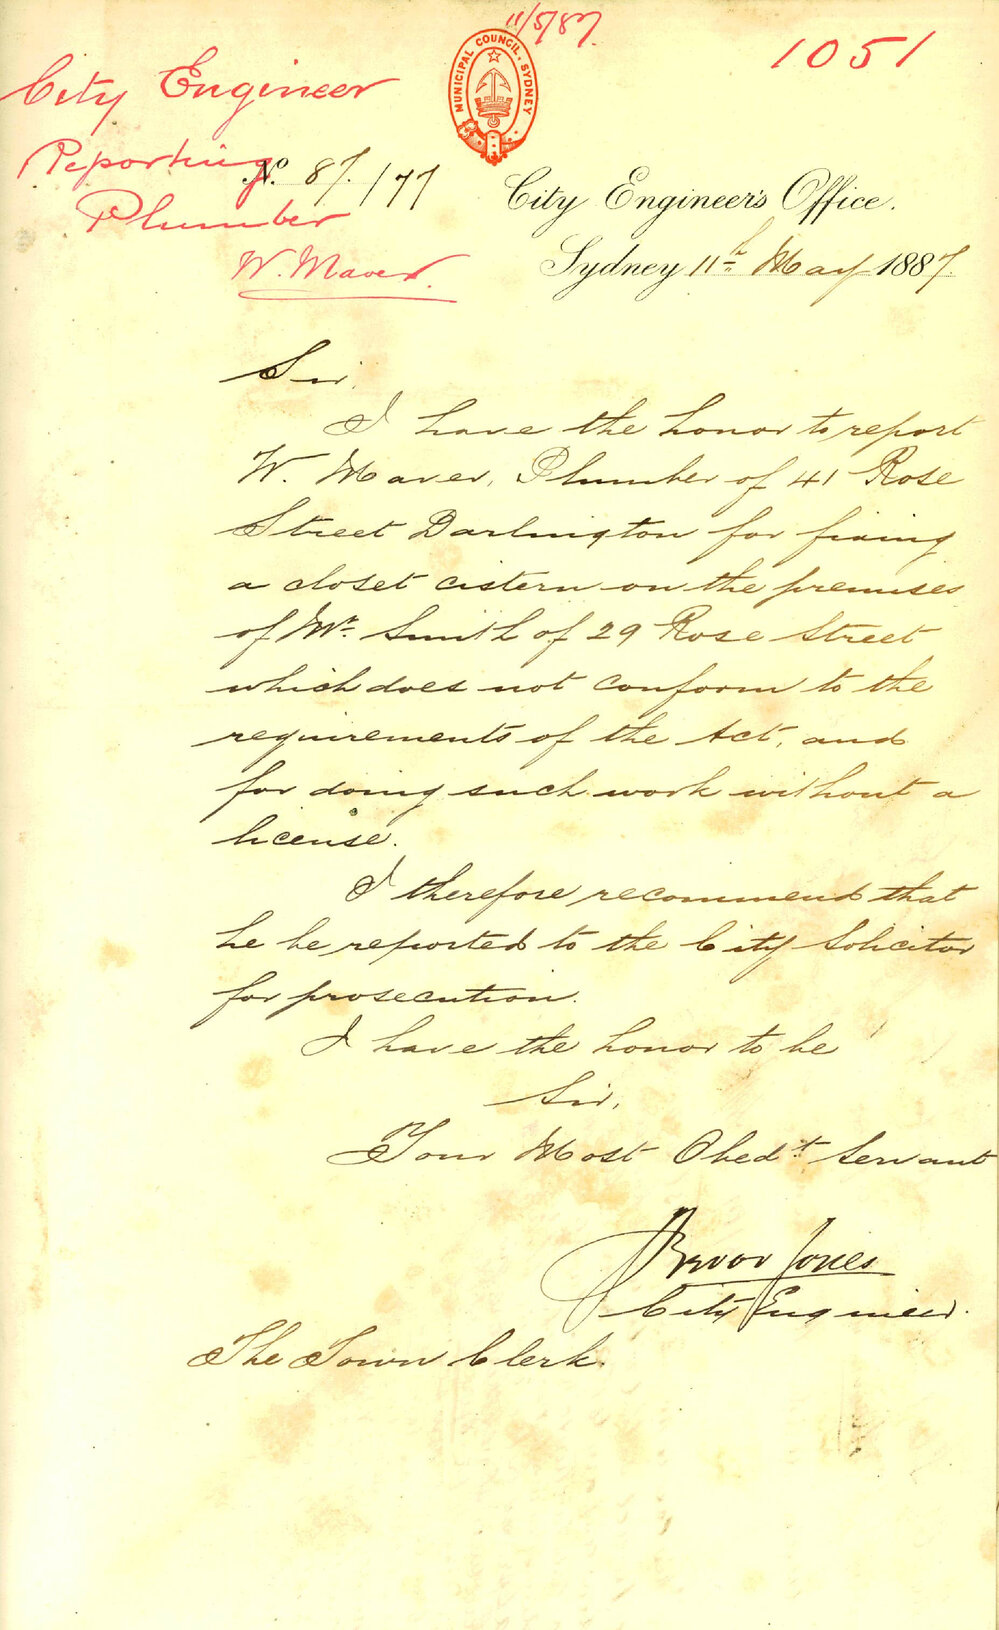 11/5/87.
1051
MUNICIPAL COUNCIL, SYDNEY
City Engineer
Reporting
Plumber
W. Maver.
No. 87/177
City Engineer's Office.
Sydney 11th May 1887.
Sir,
I have the honor to report
W. Maver, Plumber of 41 Rose
Street Darlington for fixing
a closet cistern on the premises
of Mr. Smith of 29 Rose Street
which does not conform to the
requirements of the Act, and
for doing such work without a
license.
I therefore recommend that
he be reported to the City Solicitor
for prosecution.
I have the honor to be
Sir,
Your Most Obedt Servant
Trevor Jones
City Engineer.
The Town Clerk.